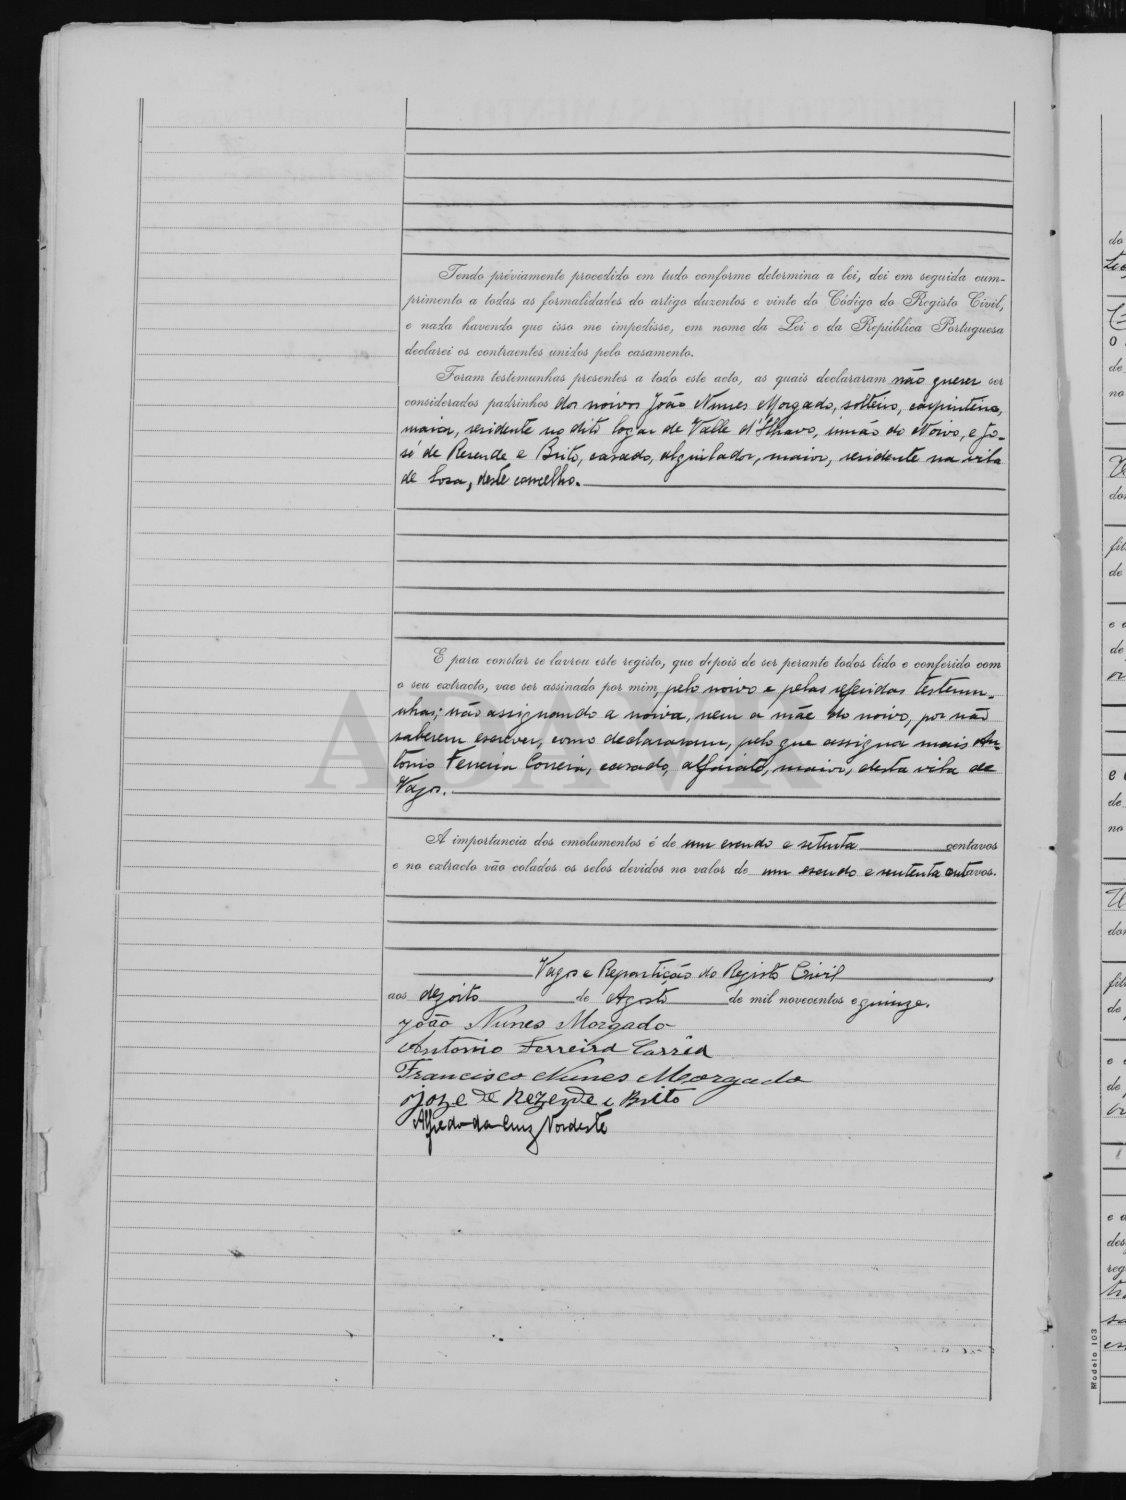 Tendo préviamente procedido em tudo conforme determina a lei, dei em seguida cum-
primento a todas as formalidades do artigo duzentos e vinte do Código do Registo Civil,
e nada havendo que isso me impedisse, em nome da Lei e da República Portuguesa
declarei os contraentes unidos pelo casamento.
Foram testemunhas presentes a todo este acto, as quais declararam não querer ser
considerados padrinhos dos noivos João Nunes Morgado, solteiro, carpinteiro,
maior, residente no dito logar de Valle d'Ilhavo, irmão do Noivo, e Jo-
sé de Resende e Brito, casado, alquilador, maior, residente na vila
de Sosa, deste concelho.
E para constar se lavrou este registo, que depois de ser perante todos lido e conferido com
o seu extracto, vae ser assinado por mim, pelo noivo e pelas referidas testemu-
nhas; não assignando a noiva, nem a mãe do noivo, por não
saberem escrever, como declararam, pelo que assigna mais An-
tonio Ferreira Correia, casado, alfaiate, maior, desta vila de
Vagos.
A importancia dos emolumentos é de um escudo e setenta centavos
e no extracto vão colados os selos devidos no valor de um escudo e setenta centavos.
Vagos e Repartição do Registo Civil
aos dezoito de Agosto de mil novecentos e quinze.
João Nunes Morgado
Antonio Ferreira Corrêa
Francisco Nunes Morgado
joze de Rezende e Brito
Alfredo da Cruz Nordeste
do
e
de
no
dos
fil
de
e
de
e
de
no
dor
fil
de
e
de
e
des
reg
Modelo 103